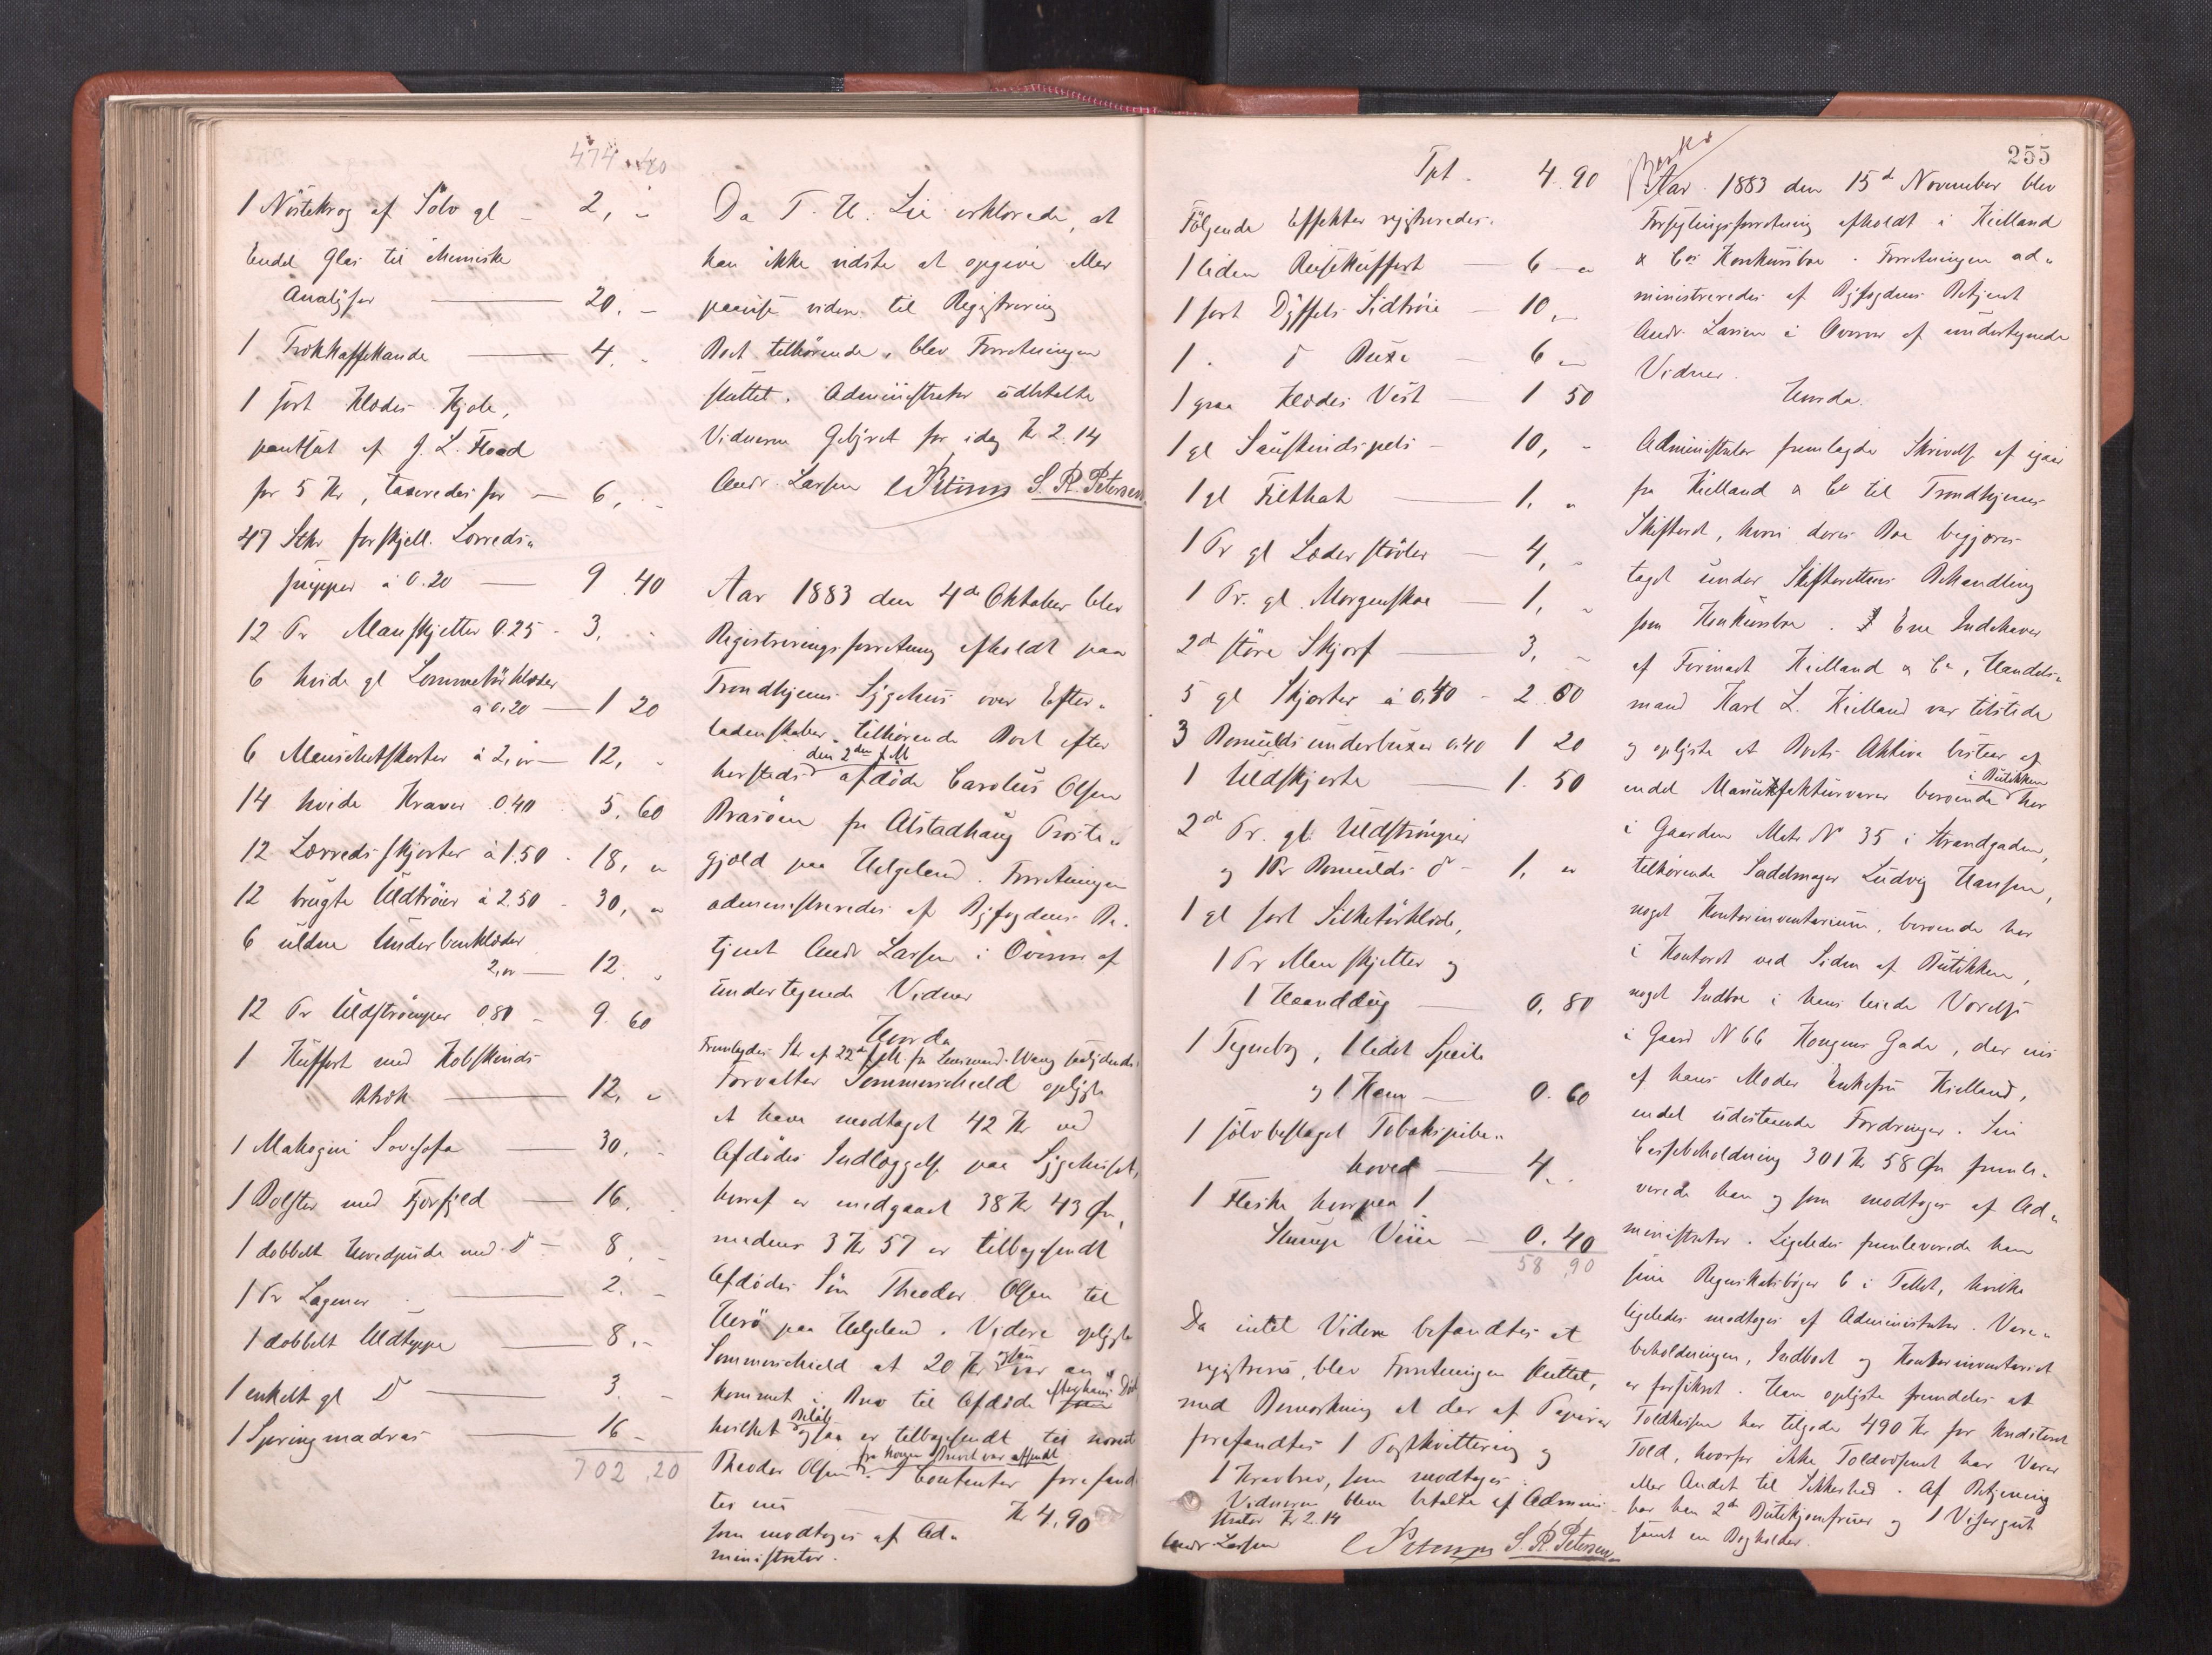 474.40
1 Nöstekrog af Sölv gl - 2, -
Endel Glas til chemiske
Analyser - 20, -
1 Trækkaffekande - 4, -
1 sort Klædes Kjole,
pantsat af J. L. Flood
for 5 Kr, taxeredes for - 6, -
47 Stkr forskjell. Lærreds-
snipper à 0.20 - 9.40
12 Pr Manskjetter 0.25 - 3, -
6 hvide gl Lommetörklæder
à 0.20 - 1 20
6 Manschetskorter à 2, - 12, -
14 hvide Kraver 0.40 - 5.60
12 Lærreds skjorter à 1.50 - 18, -
12 brugte Uldtröier à 2.50 - 30, -
6 uldne Underbenklæder
2, - 12 -
12 Pr Uldströmper 0.80 - 9.60
1 Kuffert med Kobskinds
12, -
1 Mahogni Sovesofa - 30, -
1 Bolster med Fjærfyld - 16, -
1 dobbelt Hovedpude med D° - 8, -
1 Pr Lagener - 2. -
1 dobbelt Uldteppe - 8, -
1 enkelt gl D° - 3. -
1 Springmadras - 16 -
702,20
Da T. H. Lie erklærede, at
han ikke vidste at opgive eller
paavise videre til Registrering
Boet tilhörende, blev Forretningen
sluttet. Administrator udbetalte
Vidnerne Gebyret for idag Kr 2.14
Andr. Larsen S. R. Petersen
Aar 1883 den 4de Oktober blev
Registreringsforretning afholdt paa
Trondhjems Sygehus over Efter-
ladenskaber tilhörende Boet efter
den 2den f.M
hersteds afdöde Carolus Olsen
Brasöen fra Alstadhaug Præste-
gjæld paa Helgeland. Forretningen
administreredes af Byfogdens Be-
tjent Andr Larsen i Overvær af
undertegnede Vidner
Hvorda
Fremlagdes Skr af 22de f.M. fra Lensmand Wang
Forvalter Sommerschield oplyste
at have modtaget 42 Kr ved
Afdödes Indlæggelse paa Sygehuset,
hvoraf er medgaaet 38 Kr 43 Øre,
medens 3 Kr 57 er tilbagesendt
Afdödes Sön Theodor Olsen til
Herö paa Helgeland. Videre oplyste
Sommerschield at 20 Kr var an-
kommet i Brev til Afdöde efter hans Död
hvilket Belöb ogsaa er tilbagesendt til nævnte
Theodor Olsen fra hvem Brevet var afsendt
I Contanter forefand-
tes nu Kr 4.90
som modtoges af Ad-
ministrator.
255
Tpt - 4.90
Fölgende Effekter registreredes.
1 liden Reisekuffert - 6 -
1 sort Dyffels Sidtröie - 10, -
1 - D° Buxe - 6 -
1 graa Klædes Vest - 1 50
1 gl Saueskindspels - 10, -
1 gl Filthat - 1, -
1 Pr gl Læderstövler - 4, -
1 Pr. gl. Morgenskoe - 1, -
2de större Skjærf - 3, -
5 gl Skjorter à 0.40 - 2.00
3 Bomulds underbuxer 0.40 1 20
1 Uldskjorte - 1.50
2de Pr. gl. Uldströmper
og 1 Pr Bomulds D° - 1, -
1 gl sort Silketörklæde,
1 Pr Manskjetter og
1 Haanddug - 0.80
1 Tegnebog, 1 lidet Speile
og 1 Kam - 0.60
1 sölvbeslaget Tobakspibe-
hoved - 4. -
1 Flaske hvorpaa 1
Slump Viin - 0.40
58,90
Da intet Videre befandtes at
registrere, blev Forretningen sluttet,
med Bemærkning at der af Papirer
forefandtes 1 Postkvittering og
1 Kravbrev, som modtoges
Vidnerne bleve betalte af Admini-
strator Kr 2.14
Andr Larsen S. R. Petersen
Aar 1883 den 15de November blev
Forseglingsforretning afholdt i Kielland
& Co's Konkursboe. Forretningen ad-
ministreredes af Byfogdens Betjent
Andr. Larsen i Overvær af undertegnede
Vidner.
Hvorda.
Administrator fremlagde Skrivelse af igaar
fra Kielland & Co til Trondhjems
Skifteret, hvori deres Boe begjæres
taget under Skifterettens Behandling
som Konkursboe. Ene Indehaver
af Firmaet Kielland & Co, Handels-
mand Karl L. Kielland var tilstede
og oplyste at Boets Aktiva bestaar af
i Butikken
endel Manufakturvarer beroende her
i Gaarden Matr N° 35 i Strandgaden,
tilhörende Sadelmager Ludvig Hansen,
noget Kontorinventarium, beroende her
i Kontoret ved Siden af Butikken,
noget Indboe i hans leiede Værelse
i Gaard N 66 Kongens Gade, der eies
af hans Moder Enkefru Kielland,
endel udestaaende Fordringer. Sin
Cassebeholdning 301 Kr 58 Øre frem-
verede han og som modtoges af Ad-
ministrator. Ligeledes fremleverede han
sine Regnskabsböger 6 i Tallet, hvilke
ligeledes modtoges af Administrator. Vare-
beholdningen, Indboet og Kontorinventariet
er forsikret. Han oplyste fremdeles at
Toldkassen har tilgode 490 Kr for krediteret
Told, hvorfor ikke Toldvæsenet har Varer
eller Andet til Sikkerhed. Af Betjening
har han 2de Butikjomfruer og 1 Visergut
samt en Bogholder.